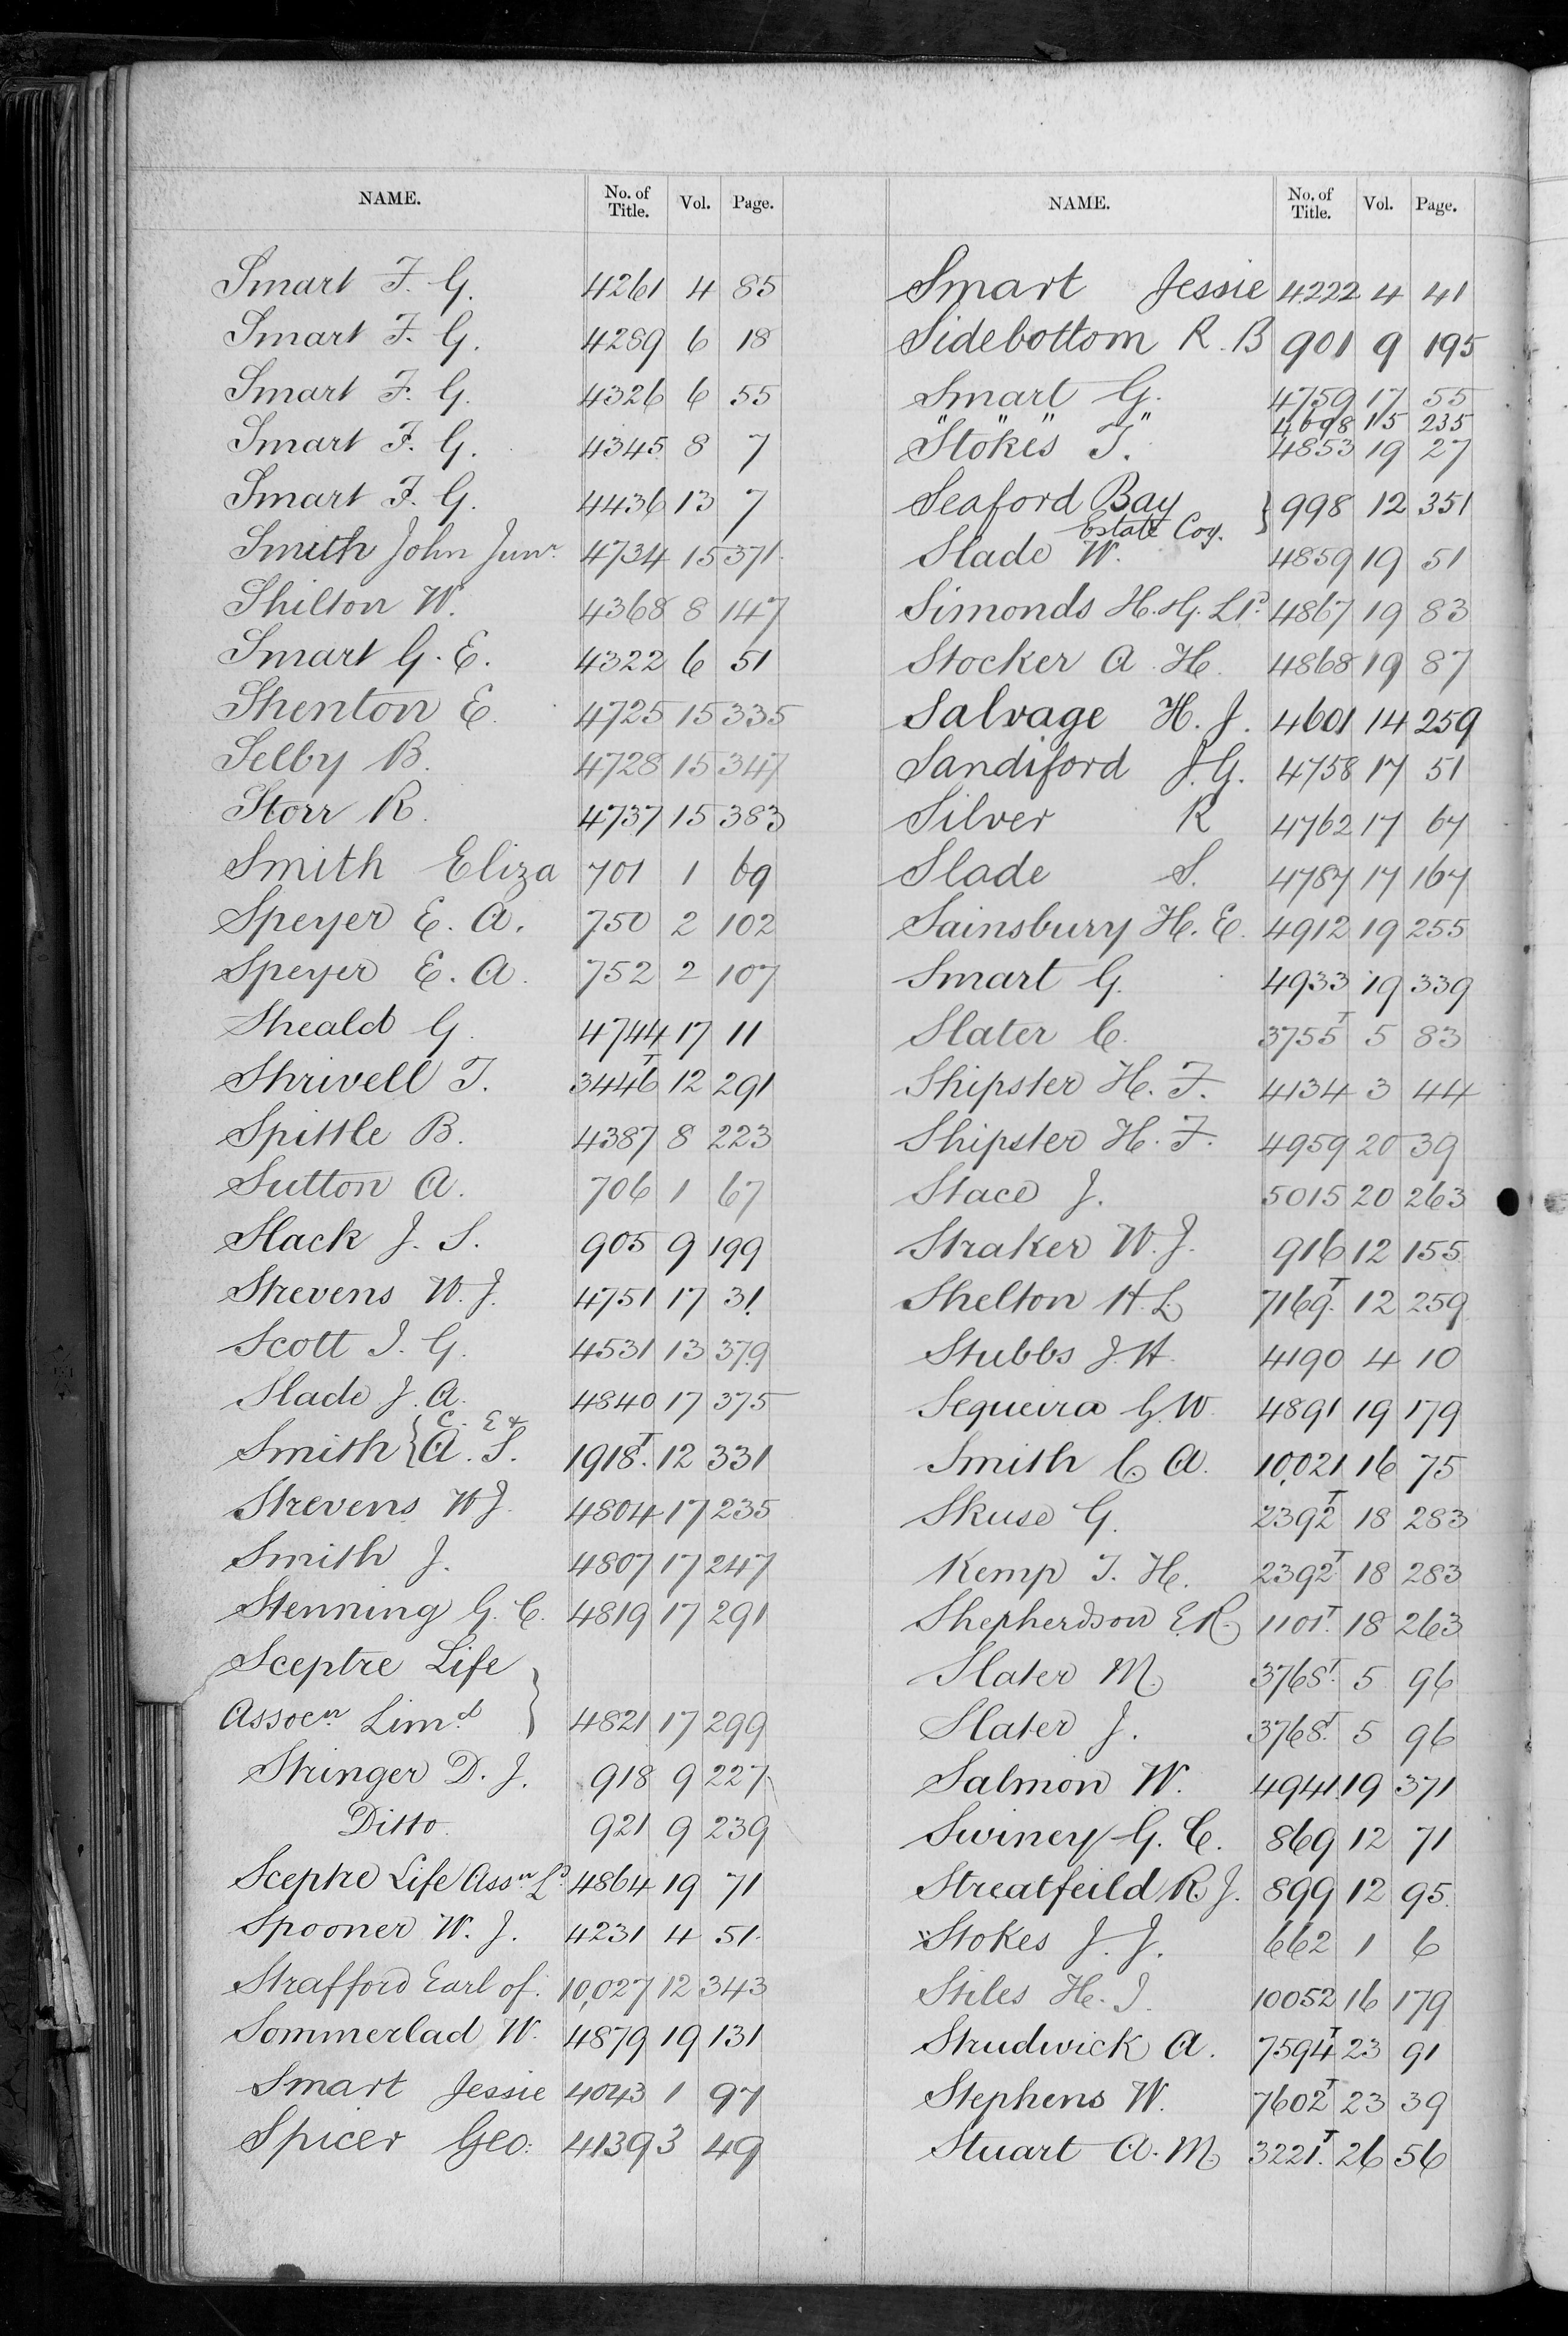 NAME. No. of Title. Vol. Page.
Smart F. G. 4261 4 85
Smart F. G. 4289 6 18
Smart F. G. 4326 6 55
Smart F. G. 4345 8 7
Smart F. G. 4436 13 7
Smith John Junr. 4734 15 371
Shilton W. 4368 8 147
Smart G. E. 4322 6 51
Shenton E. 4725 15 335
Selby B. 4728 15 347
Storr R. 4737 15 383
Smith Eliza 701 1 69
Speyer E. A. 750 2 102
Speyer E. A. 752 2 107
Sheald G. 4744 17 11
Shrivell T. 3446T 12 291
Spittle B. 4387 8 223
Sutton A. 706 1 67
Slack J. S. 905 9 199
Strevens W. J. 4751 17 31
Scott J. G. 4531 13 379
Slade J. A. 4840 17 375
Smith { C. E &
A. S. 1918T. 12 331
Strevens W J. 4804 17 235
Smith J. 4807 17 247
Stenning G. C. 4819 17 291
Sceptre Life }
Assocn. Limd. 4821 17 299
Stringer D. J. 918 9 227
Ditto 921 9 239
Sceptre Life Assn. Ld. 4864 19 71
Spooner W. J. 4231 4 51
Strafford Earl of. 10,027 12 343
Sommerlad W. 4879 19 131
Smart Jessie 4043 1 97
Spicer Geo: 4139 3 49
NAME. No. of Title. Vol. Page.
Smart Jessie 4222 4 41
Sidebottom R. B 901 9 195
Smart G. 4759 17 55
" " " " 4698 15 235
Stokes T. 4853 19 27
Seaford Bay } 998 12 351
Estate Coy.
Slade W. 4859 19 51
Simonds H. G. Ld. 4867 19 83
Stocker A. H. 4868 19 87
Salvage H. J. 4601 14 259
Sandiford J. G. 4758 17 51
Silver R 4762 17 67
Slade S. 4787 17 167
Sainsbury H. E. 4912 19 255
Smart G. 4933 19 339
Slater C. 3755T 5 83
Shipster H. F. 4134 3 44
Shipster H. F. 4959 20 39
Stace J. 5015 20 263
Straker W. J. 916 12 155
Shelton H. L. 7169T. 12 259
Stubbs J. H. 4190 4 10
Sequeira G. W. 4891 19 179
Smith C. A. 10,021 16 75
Skuse G. 2392T 18 283
Kemp T. H. 2392T. 18 283
Shepherdson E. R. 1101T. 18 263
Slater M. 3768T. 5 96
Slater J. 3768T. 5 96
Salmon W. 4941 19 371
Swiney G. C. 869 12 71
Streatfeild R. J. 899 12 95
xStokes J. J. 662 1 6
Stiles H. J. 10052 16 179
Strudwick A. 7594T 23 91
Stephens W. 7602T 23 39
Stuart A. M. 3221T. 26 56